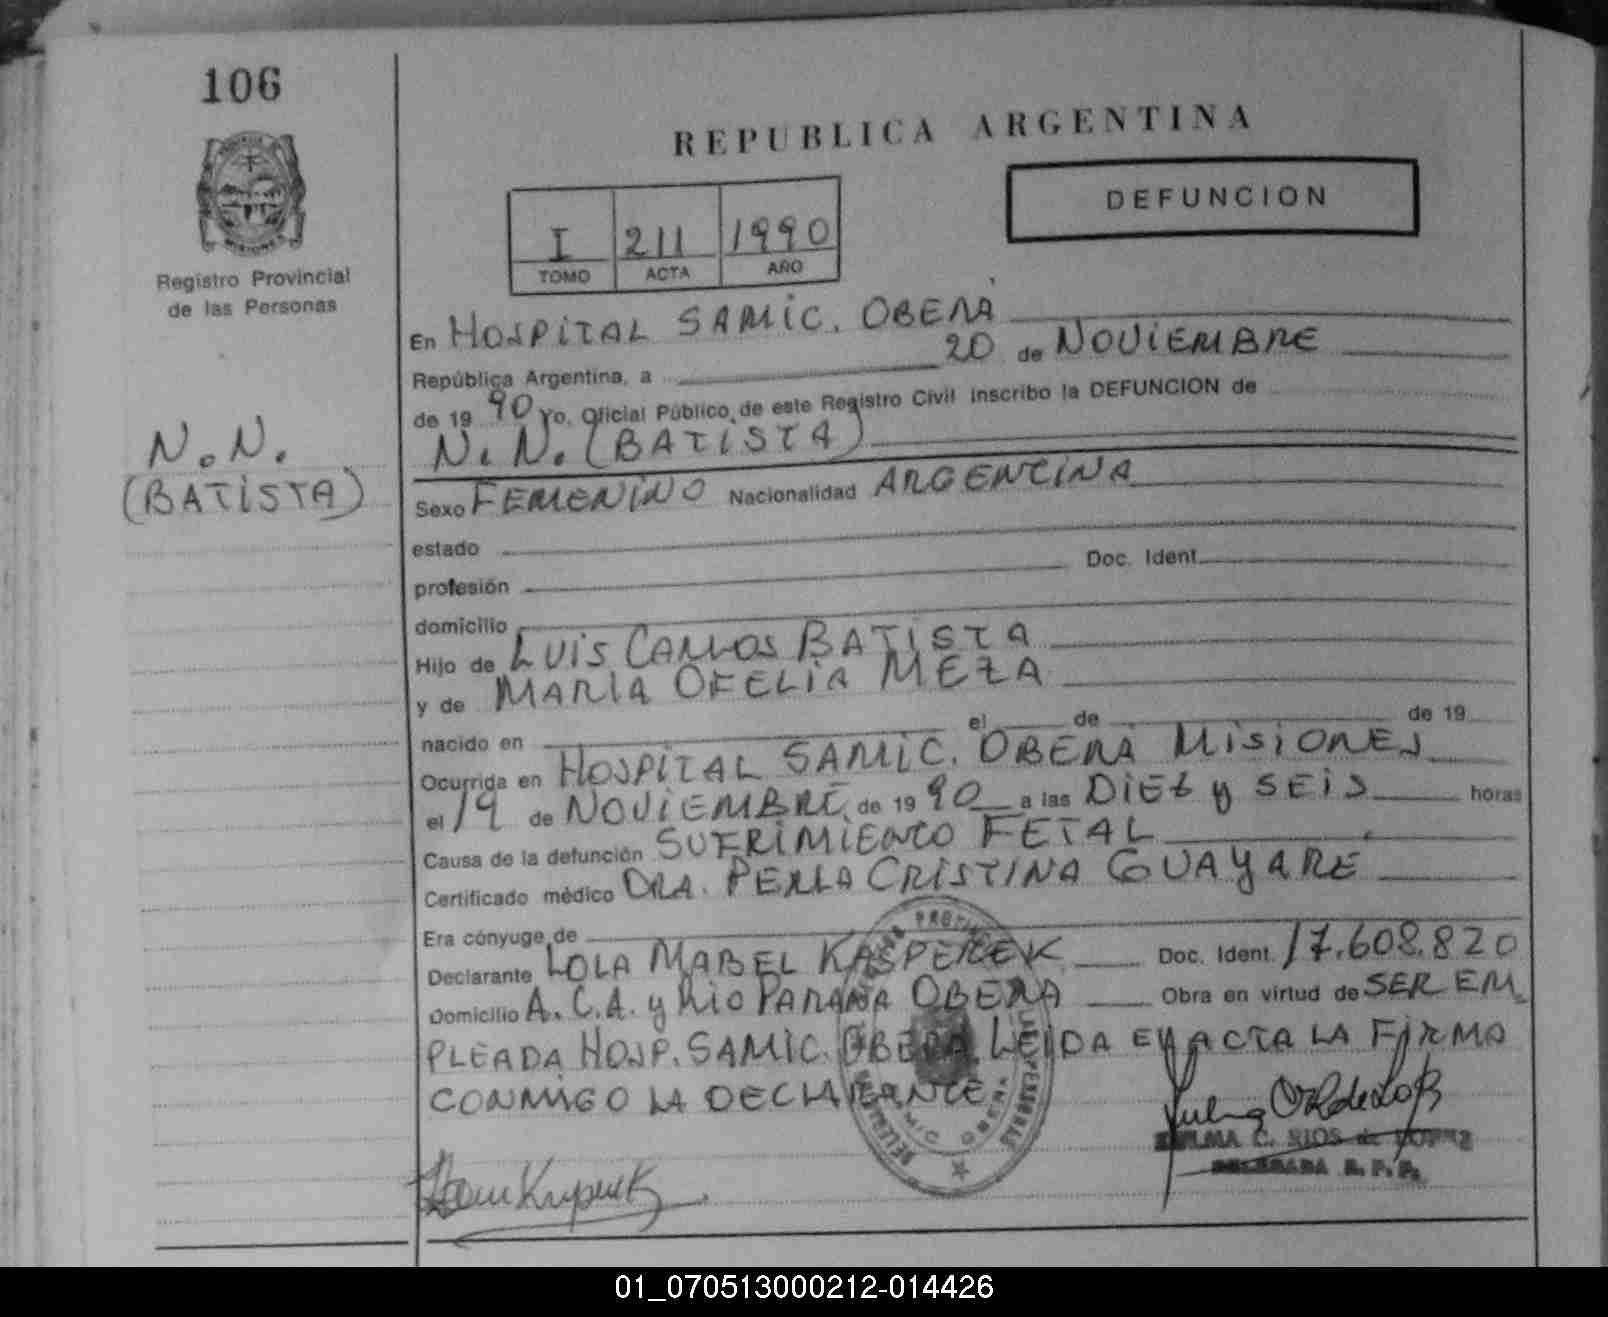 106
REPUBLICA ARGENTINA
DEFUNCION
I 211 1990
TOMO ACTA AÑO
MISIONES
Registro Provincial
de las Personas
En HOSPITAL SAMIC. OBERÁ
República Argentina, a 20 de NOVIEMBRE
de 19 90 Yo, Oficial Público de este Registro Civil inscribo la DEFUNCION de
N. N. (BATISTA)
N. N.
(BATISTA)
Sexo FEMENINO Nacionalidad ARGENTINA
estado
profesión Doc. Ident.
domicilio
Hijo de LUIS CARLOS BATISTA
y de MARIA OFELIA MEZA
nacido en el de de 19
Ocurrida en HOSPITAL SAMIC. OBERÁ MISIONES
el 19 de NOVIEMBRE de 19 90 a las DIEZ y SEIS horas
Causa de la defunción SUFRIMIENTO FETAL
Certificado médico DRA. PERLA CRISTINA GUAYARE
Era cónyuge de
Declarante LOLA MABEL KASPEREK Doc. Ident. 17.608.820
Domicilio A.C.A. y RIO PARANA OBERA Obra en virtud de SER EM
PLEADA HOSP. SAMIC. OBERA. LEIDA EL ACTA LA FIRMA
CONMIGO LA DECLARANTE.
C. RIOS de
DELEGADA R. P. P.
01_070513000212-014426